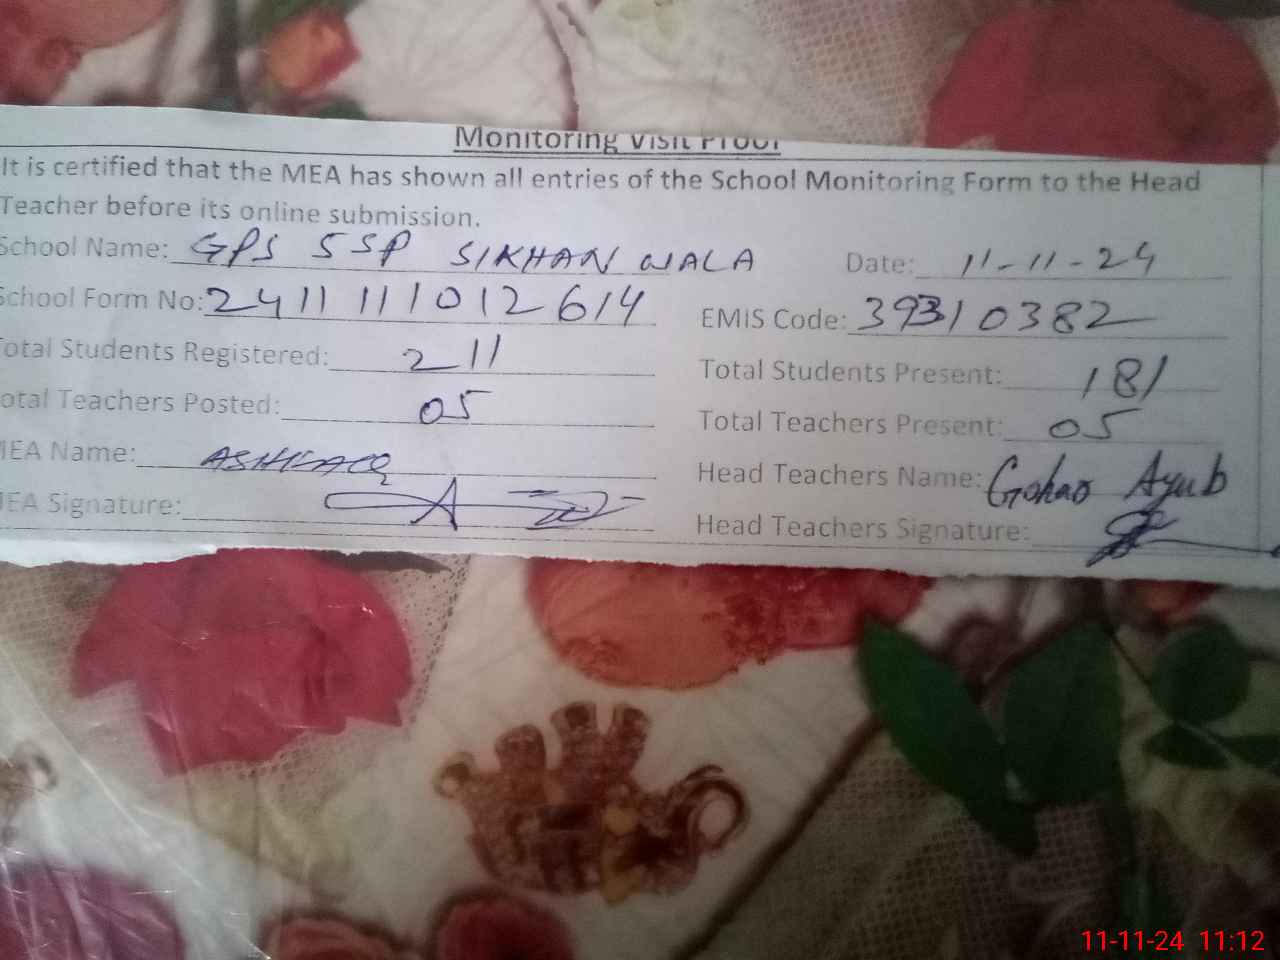 Monitoring Visit Proof
It is certified that the MEA has shown all entries of the School Monitoring Form to the Head
Teacher before its online submission.
School Name: GPS SSP SIKHAN WALA Date: 11-11-24
School Form No: 2411111012614 EMIS Code: 39310382
Total Students Registered: 211 Total Students Present: 181
Total Teachers Posted: 05 Total Teachers Present: 05
MEA Name: ASHFAQ Head Teachers Name: Gohar Ayub
MEA Signature: Head Teachers Signature:
11-11-24 11:12